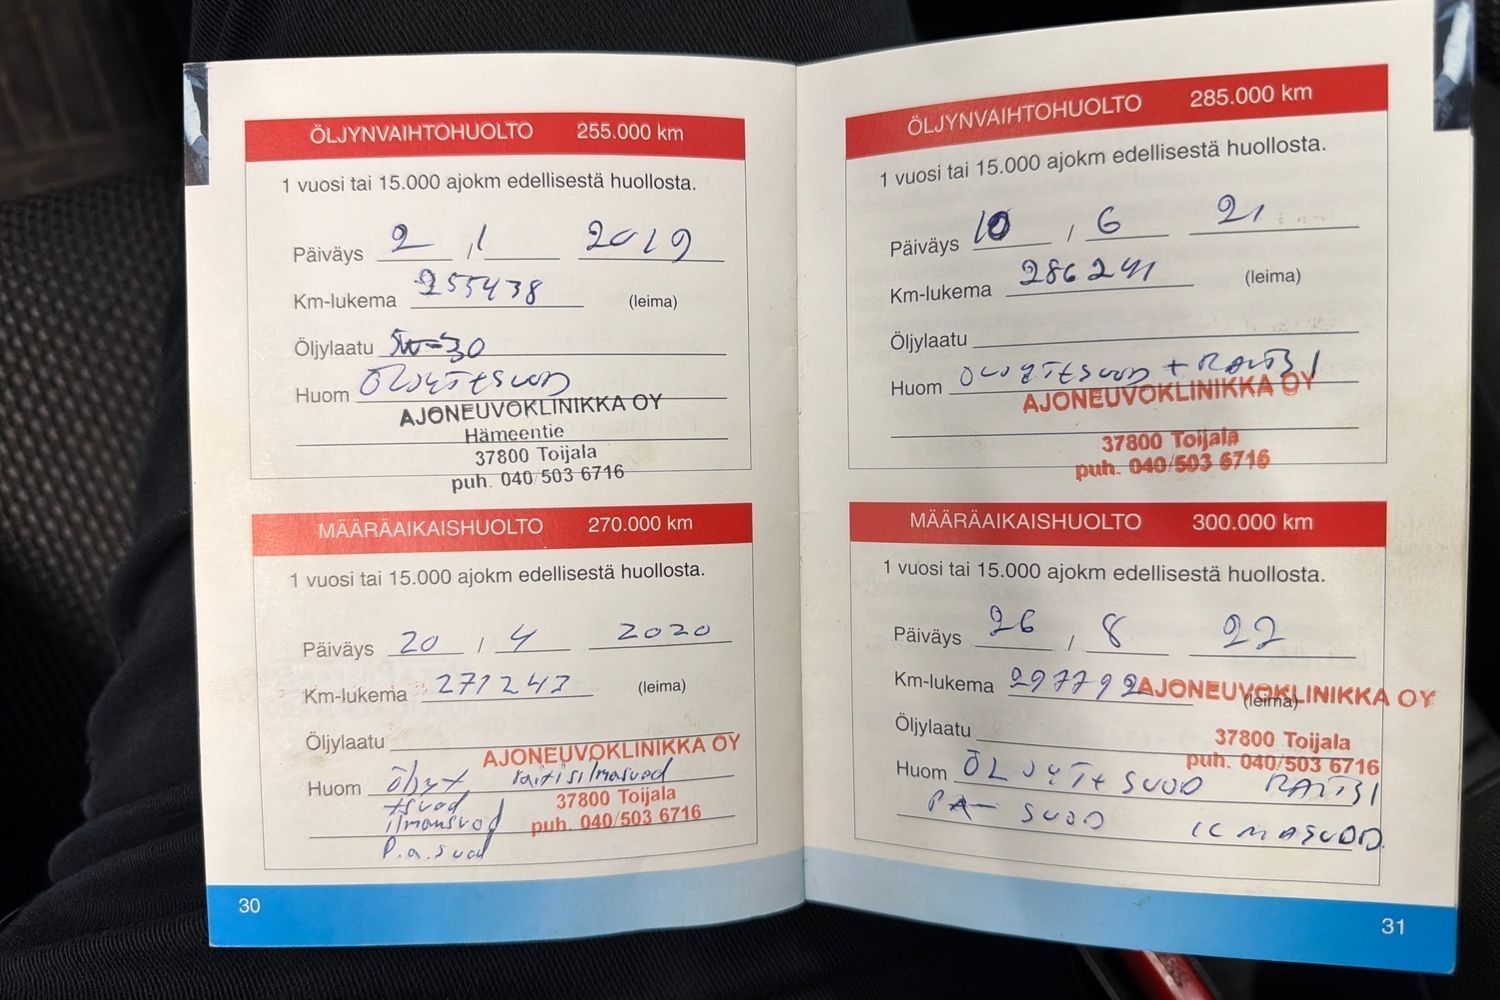 ÖLJYNVAIHTOHUOLTO 255.000 km
1 vuosi tai 15.000 ajokm edellisestä huollosta.
Päiväys 2 , 1 2019
Km-lukema 255438 (leima)
Öljylaatu 5w-30
Huom ÖLJYT+SUOD
AJONEUVOKLINIKKA OY
Hämeentie
37800 Toijala
puh. 040/503 6716
MÄÄRÄAIKAISHUOLTO 270.000 km
1 vuosi tai 15.000 ajokm edellisestä huollosta.
Päiväys 20 , 4 2020
Km-lukema 271243 (leima)
Öljylaatu
AJONEUVOKLINIKKA OY
Huom öljyt raitisilmasuod
+suod
37800 Toijala
ilmansuod
puh. 040/503 6716
P.a.suod
30
ÖLJYNVAIHTOHUOLTO 285.000 km
1 vuosi tai 15.000 ajokm edellisestä huollosta.
Päiväys 10 , 6 21
Km-lukema 286241 (leima)
Öljylaatu
Huom ÖLJYT+SUOD + RAITSI
AJONEUVOKLINIKKA OY
37800 Toijala
puh. 040/503 6716
MÄÄRÄAIKAISHUOLTO 300.000 km
1 vuosi tai 15.000 ajokm edellisestä huollosta.
Päiväys 26 , 8 22
Km-lukema 297792 (leima)
AJONEUVOKLINIKKA OY
Öljylaatu
37800 Toijala
puh. 040/503 6716
Huom ÖLJYT+SUOD RAITSI
PA-SUOD ILMASUOD
31